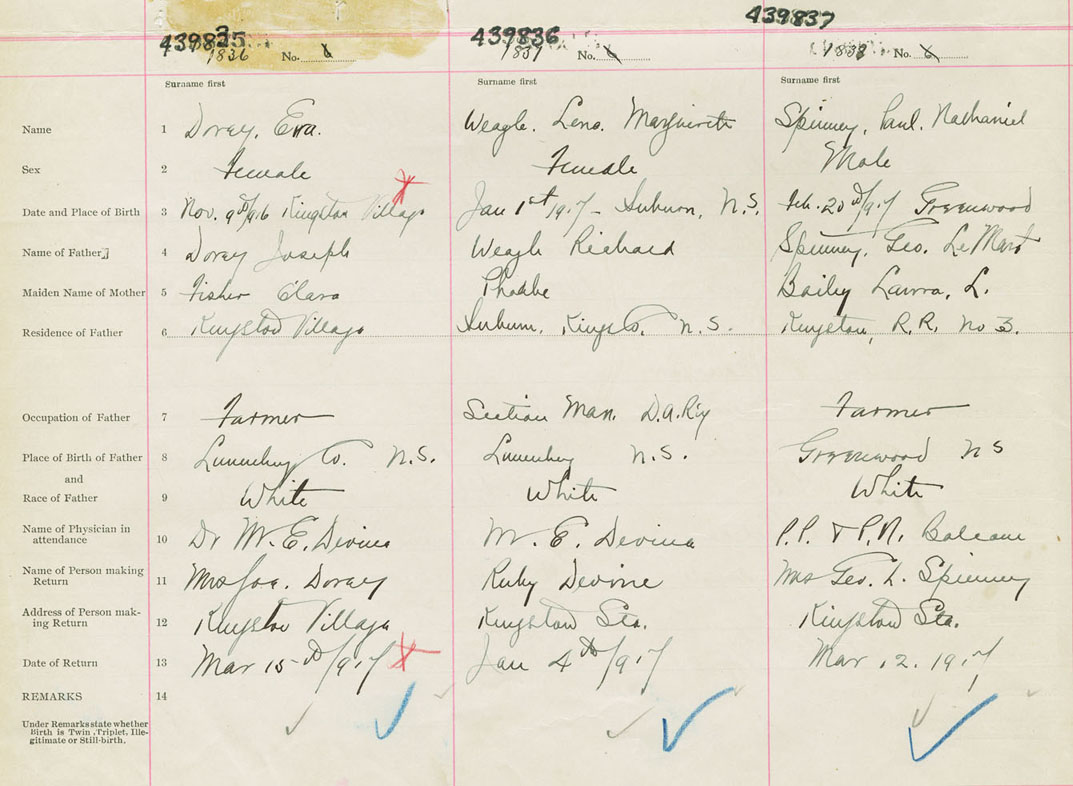 439835 439836 439837
1836 No. 6 1837 No. 6 1838 No. 6
Surname first Surname first Surname first
Name 1 Dorey, Eva. Weagle. Lena. Marguerite Spinney, Paul. Nathaniel
Sex 2 Female Female Male
Date and Place of Birth 3 Nov. 9th/916 Kingston Village Jan 1st 1917 - Auburn, N.S. Feb. 20th/917 Greenwood
Name of Father 4 Dorey Joseph Weagle Richard Spinney, Geo.
Maiden Name of Mother 5 Fisher Clara Phoebe Baily Laura, L.
Residence of Father 6 Kingston Village Auburn, Kings Co. N.S. Kingston, R.R. No 3.
Occupation of Father 7 Farmer Section Man. D.A.Ry Farmer
Place of Birth of Father 8 Lunenburg Co. N.S. Lunenburg N.S. Greenwood NS
and
Race of Father 9 White White White
Name of Physician in
attendance 10 Dr W. E. Devine W. E. Devine P.P. & P.N. Balcom
Name of Person making
Return 11 Mrs Jos. Dorey Ruby Devine Mrs Geo. L. Spinney
Address of Person mak-
ing Return 12 Kingston Village Kingston Sta. Kingston Sta.
Date of Return 13 Mar 15th/917 Jan 4th/917 Mar 12. 1917
REMARKS 14
Under Remarks state whether
Birth is Twin, Triplet, Ille-
gitimate or Still-birth.